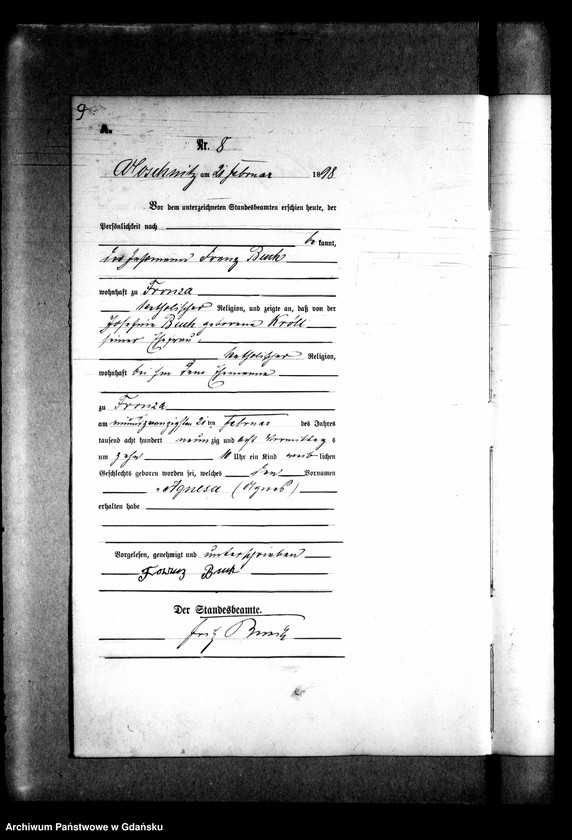 9
A.
Nr. 8
am 21 Februar 1898
Vor dem unterzeichneten Standesbeamten erschien heute, der
Persönlichkeit nach
be kannt,
Franz Buch
wohnhaft zu Fronza
katholischer Religion, und zeigte an, daß von der
Josefine Buch geborene Kröll
seiner Ehefrau
katholischer Religion,
wohnhaft bei ihm dem Ehemanne
zu Fronza
am ten Februar des Jahres
tausend acht hundert neunzig und acht Vormittags
um zehn 10 Uhr ein Kind weib lichen
Geschlechts geboren worden sei, welches den Vornamen
Agnesa (Agnes)
erhalten habe
Vorgelesen, genehmigt und unterschrieben
Franz Buch
Der Standesbeamte.
Fritz
Archiwum Państwowe w Gdańsku